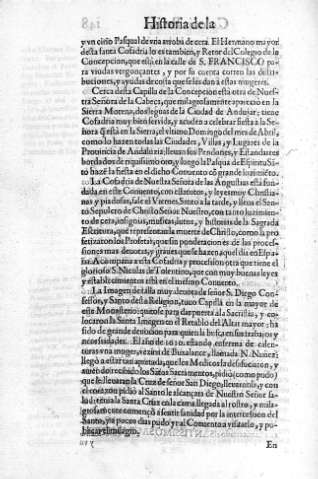 Historia de la
y vn cirio Pasqual de vna arroba de cera. El Hermano mayor
desta santa Cofadria lo es tambien, y Retor del Colegio de la
Concepcion, que està en la calle de S. FRANCISCO pa-
ra viudas vergonçantes, y por su cuenta corren las distri-
buciones, y ayudas de costa que se les dan à estas mugeres.
Cerca desta Capilla de la Concepcion està otra de Nues-
tra Señora de la Cabeça, que milagrosamente apareciò en la
Sierra Morena, dos leguas de la Ciudad de Andujar; tiene
Cofadria muy bien servida, y acuden a celebrar fiesta a la Se-
ñora (fiesta en la Sierra, el vltimo Domingo del mes de Abril,
como lo hazen todas las Ciudades, Villas, y Lugares de la
Provincia de Andaluzia; llevan sus Pendones, y Estandartes
bordados de riquissimo oro, y luego la Pasqua de Espiritu Sã-
to hazẽ la fiesta en dicho Convento cõ grande luzimiẽto.
La Cofadria de Nuestra Señora de las Angustias està fun-
dada en este Convento, con estatutos, y leyes muy Christia-
nas y piadosas, sale el Viernes Santo à la tarde, y lleva el San-
to Sepulcro de Christo Señor Nuestro, con tanto luzimien-
to de cera, insignias, musicas, lutos, y historias de la Sagrada
Escritura, que representan la muerte de Christo, como la pro
fetizaron los Profetas, que sin ponderacion es de las proces-
siones mas devotas, y graves que se hazen aquel dia en Espa-
ña. Acompaña a esta Cofadria y procession otra que tiene el
glorioso S. Nicolas de Tolentino, que con muy buenas leyes
y establecimientos està en el mismo Convento.
La Imagen de talla muy devota de señor S. Diego Con-
fessor, y Santo desta Religion, tuvo Capilla en la mayor de
este Monasterio: quitose para dar puerta a la Sacristia, y co-
locaron la Santa Imagen en el Retablo del Altar mayor: ha
sido de grande devocion para quien la busca en sus trabajos y
necessidades. El año de 1610. estando enferma de calen-
turas vna muger, vezina de Buxalance, llamada N. Nuñez;
llegò a estar tan apretada, que los Medicos la desafuciaron, y
auiendo recebido los Sãtos Sacramentos, pidiò (como pudo)
que le llevaran la Cruz de señor San Diego, llevaronla, y con
el coraçon pidiò al Santo le alcançase de Nuestro Señor sa-
lud: tenia la Santa Cruz en la cama llegada al rostro, y mila-
grosamente començò a sentir sanidad por la intercession del
Santo, y a pocos dias pudo yr al Convento a visitarle, y pu-
blicar el milagro.
En